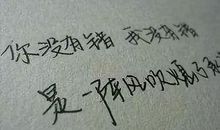 你没有错 我没有错
是一阵风吹熄了我